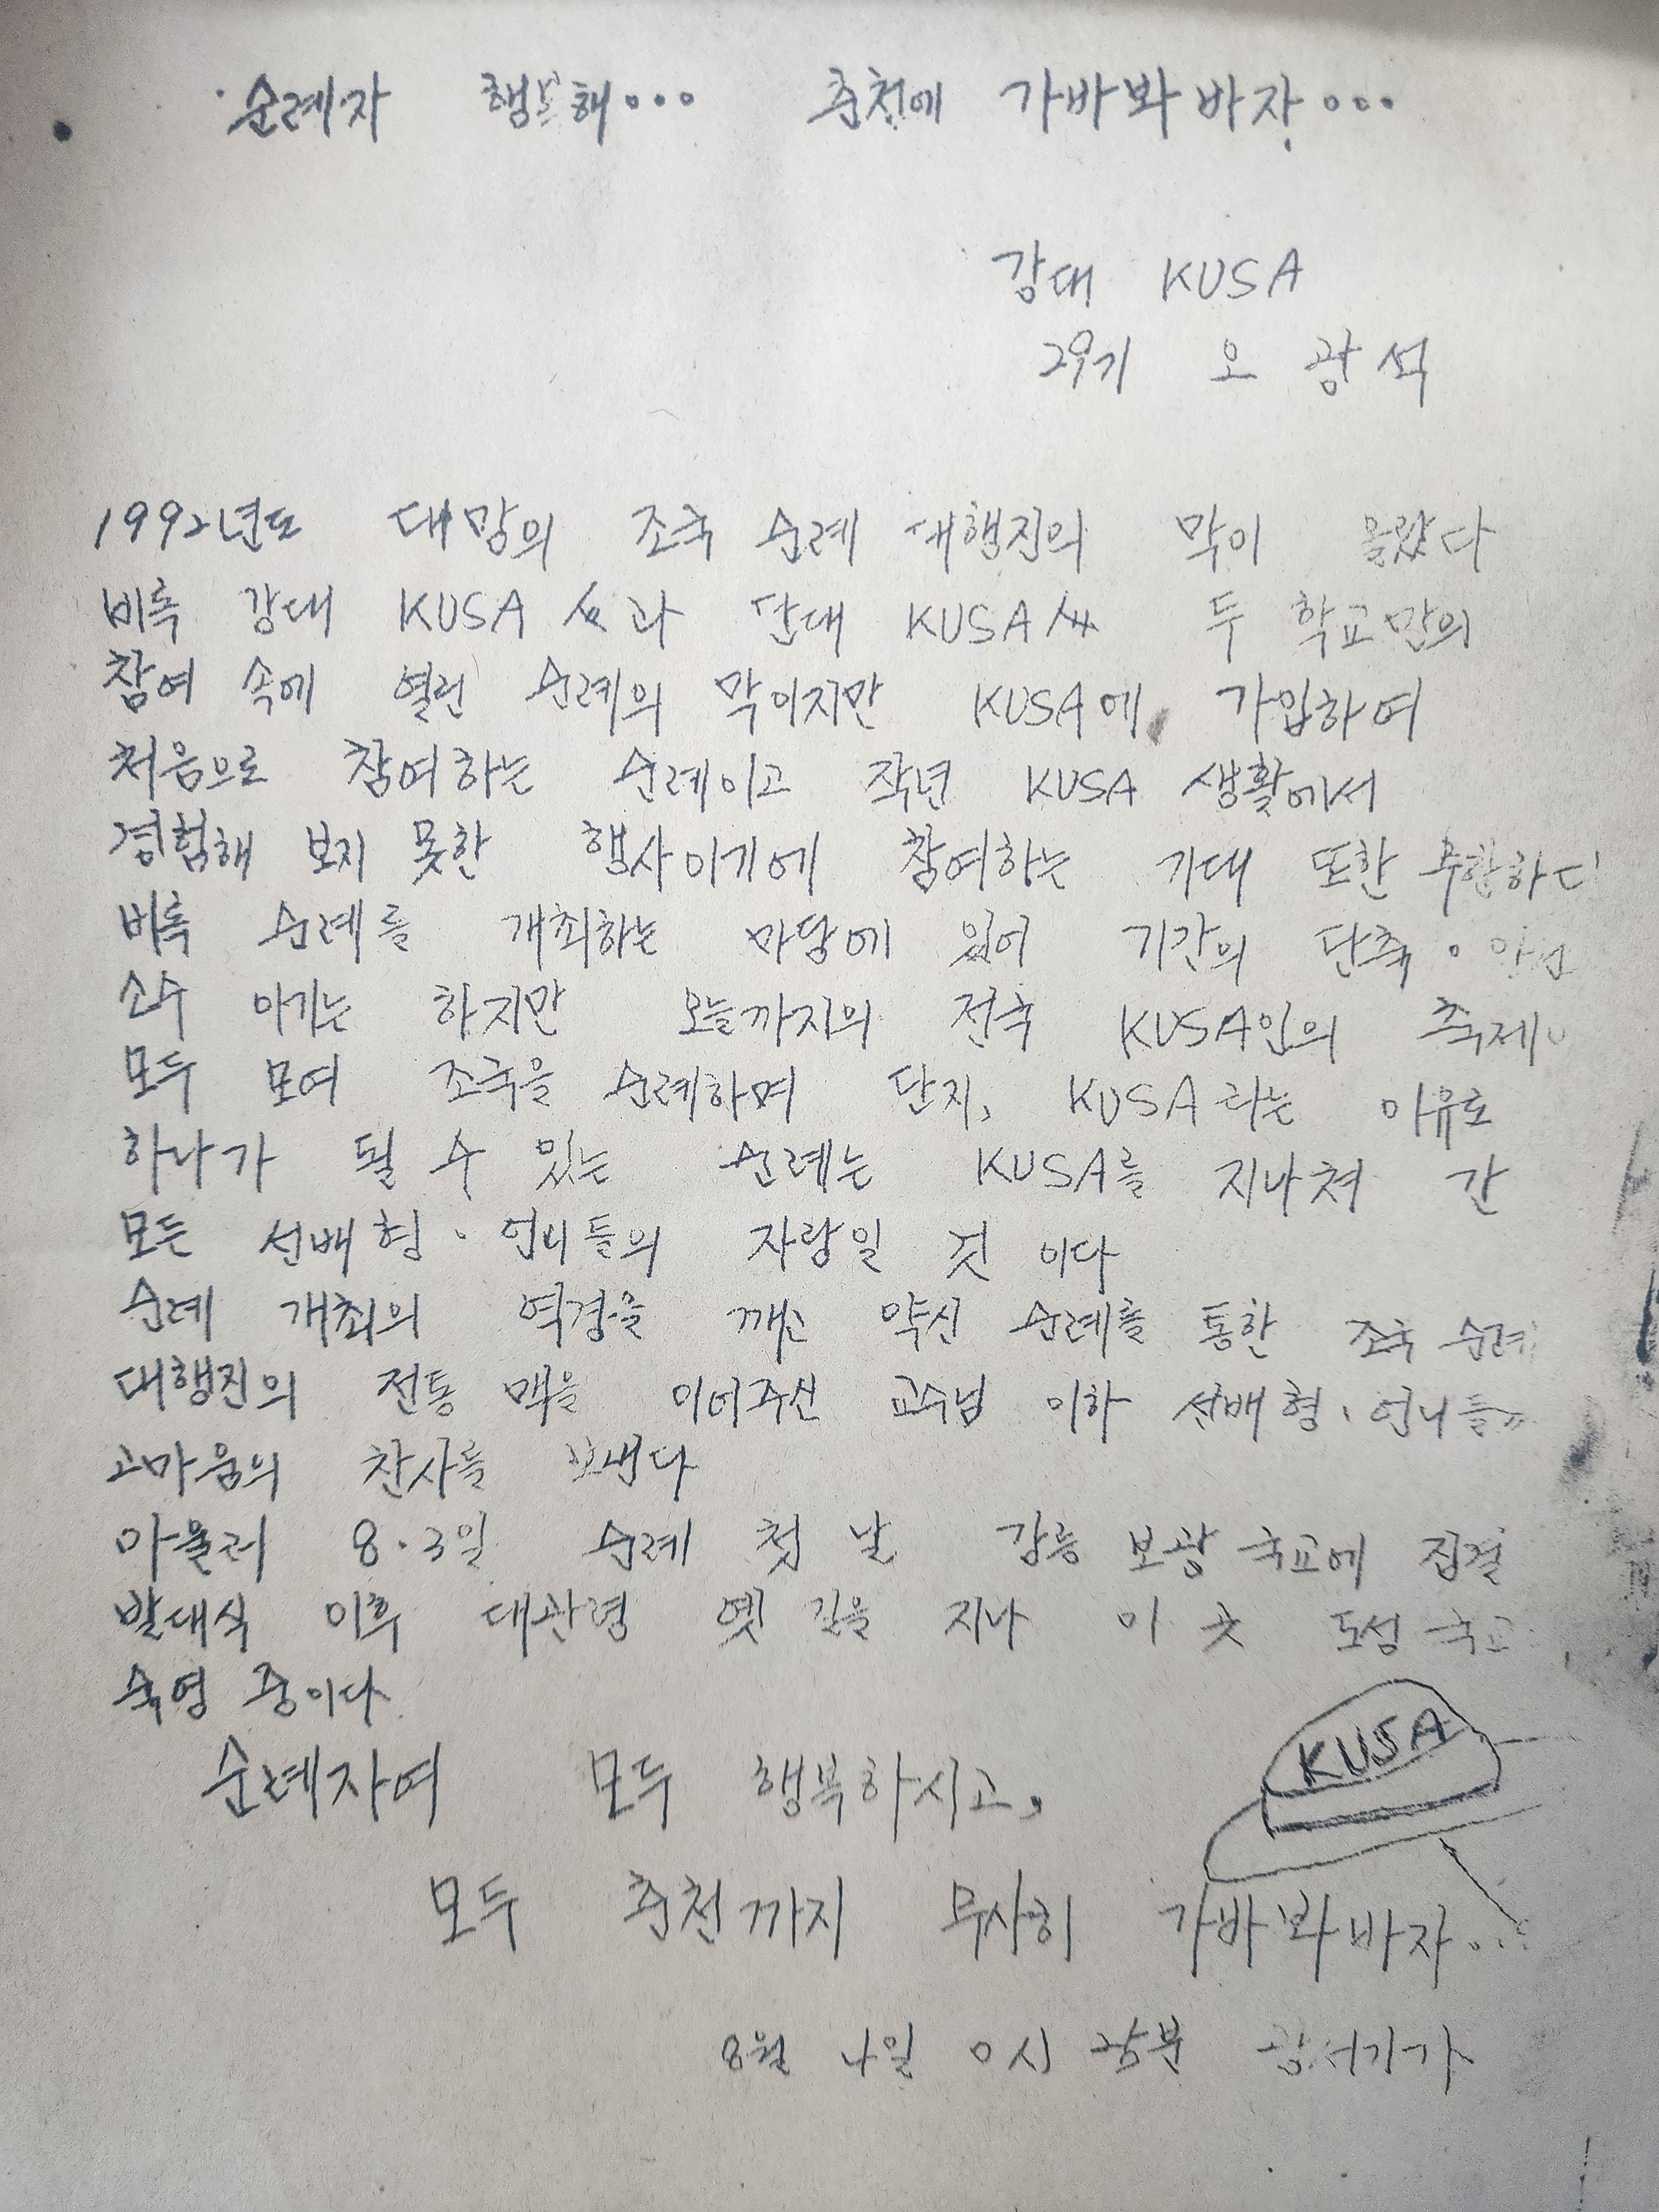 순례자 행복해... 춘천에 가바봐바자...
강대 KUSA
29기 오광석
1992년도 대망의 조국 순례 대행진의 막이 올랐다
비록 강대 KUSA 와 단대 KUSA 두 학교만의
참여 속에 열린 순례의 막이지만 KUSA에 가입하여
처음으로 참여하는 순례이고 작년 KUSA 생활에서
경험해 보지 못한 행사이기에 참여하는 기대 또한
비록 순례를 개최하는 마당에 있어 기간의 단축·
소수 이기는 하지만 오늘까지의 전국 KUSA인의 축제
모두 모여 조국을 순례하며 단지, KUSA라는 이유로
하나가 될 수 있는 순례는 KUSA를 지나쳐 간
모든 선배 형·언니들의 자랑일 것 이다
순례 개최의 역경을 깨고 약신 순례를 통한 조국 순례
대행진의 전통 맥을 이어주신 교수님 이하 선배 형·언니들
고마움의 찬사를 보낸다
아울러 8.3일 순례 첫 날 강릉 보광 국교에 집결
발대식 이후 대관령 옛 길을 지나 이 곳 도성 국교
숙영 중이다
KUSA
순례자여 모두 행복하시고,
모두 춘천까지 무사히 가바봐바자...
8월 4일 0시 25분 광서기가